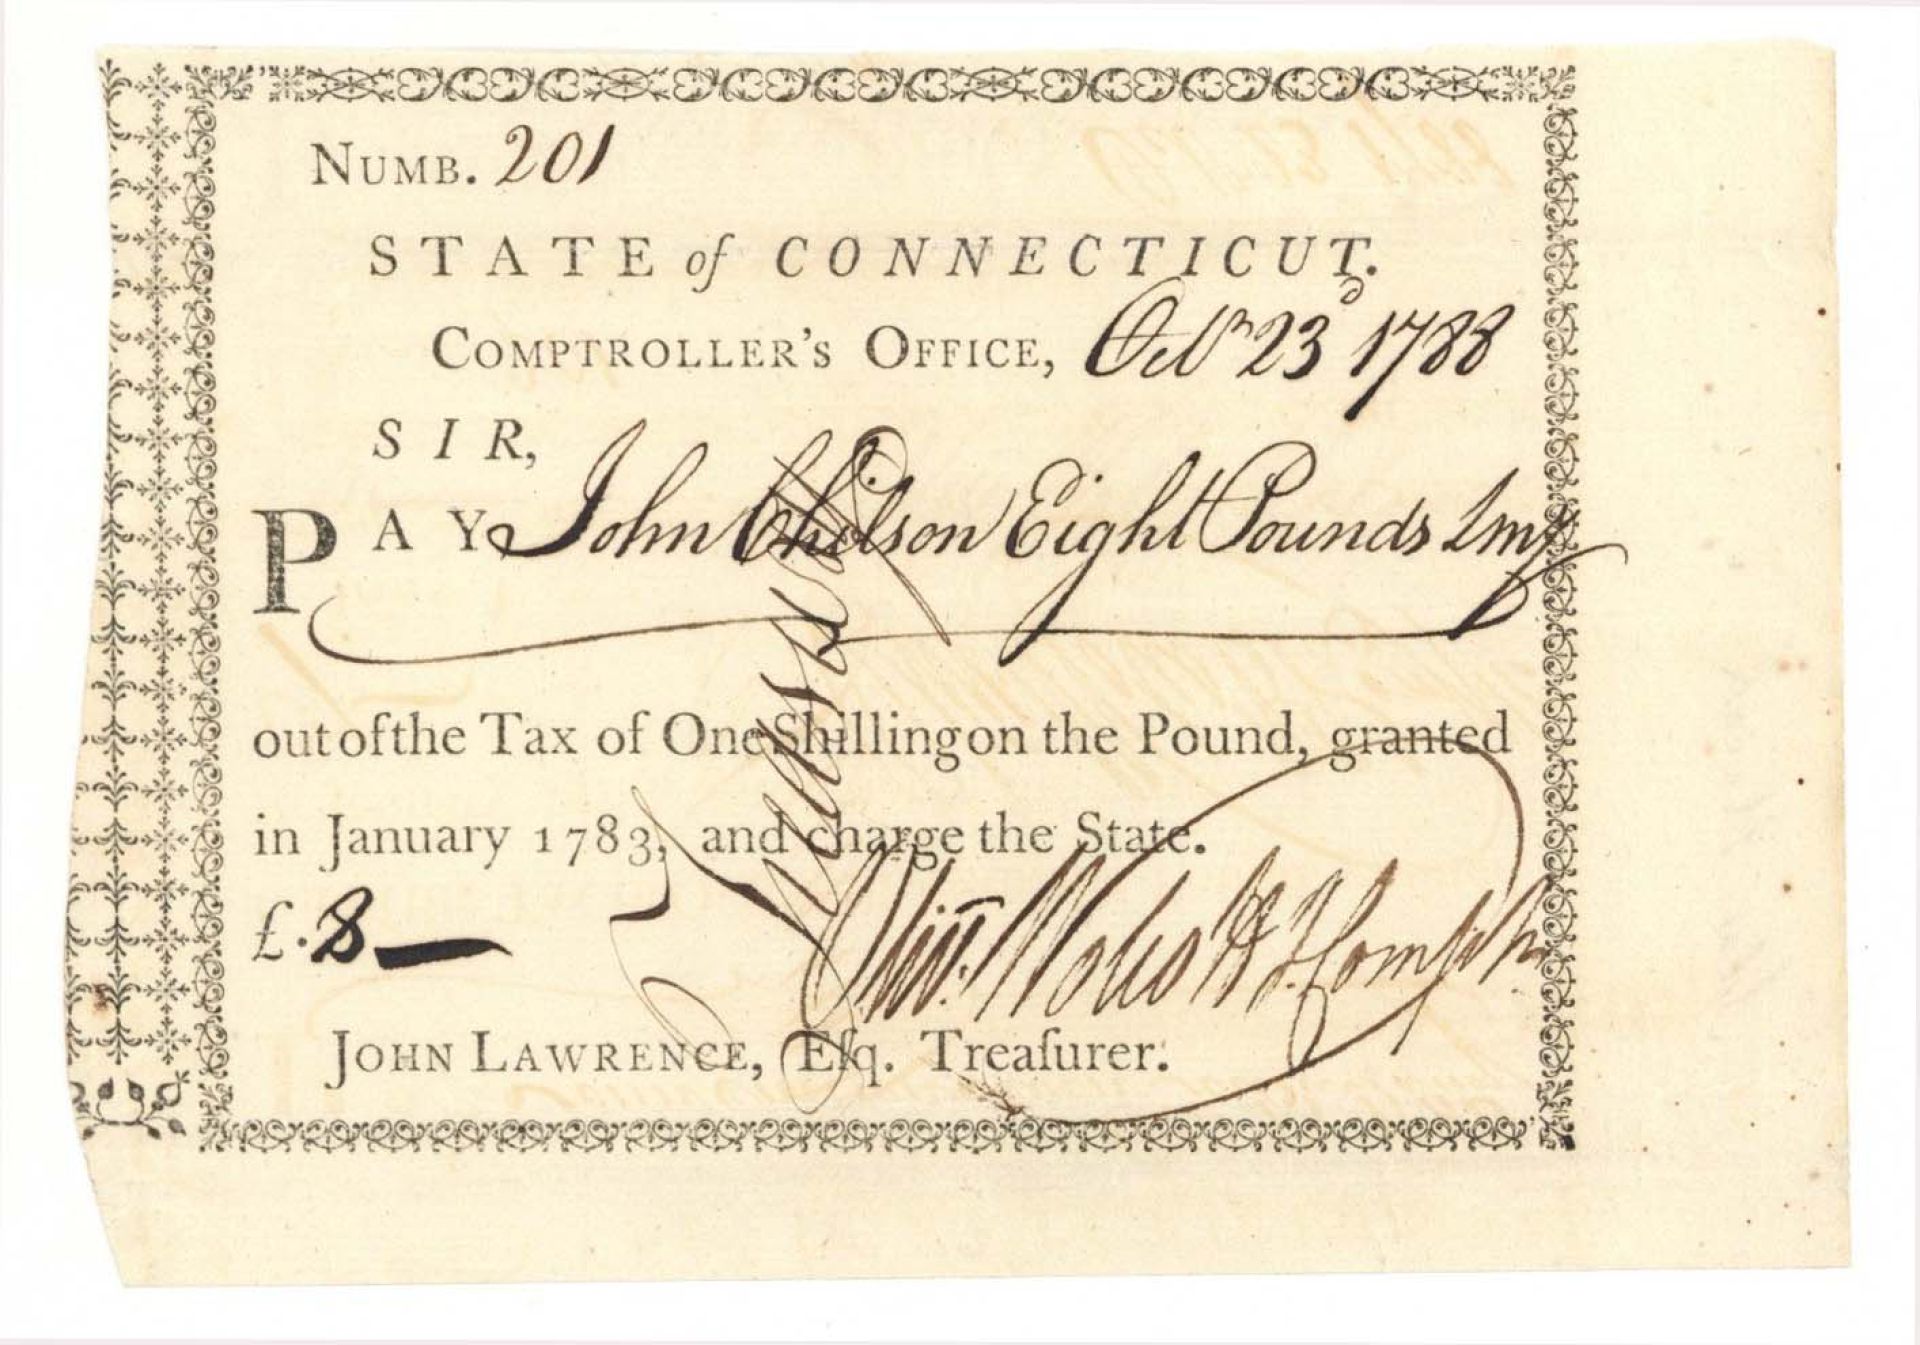 NUMB. 201
STATE of CONNECTICUT.
COMPTROLLER'S OFFICE, Octr 23d 1788
SIR,
PAY John Chilson Eight Pounds Lmy
out of the Tax of One Shilling on the Pound, granted
in January 1783, and charge the State.
£.8
Olivr. Wolcott Jr. Compt
JOHN LAWRENCE, Eſq. Treaſurer.